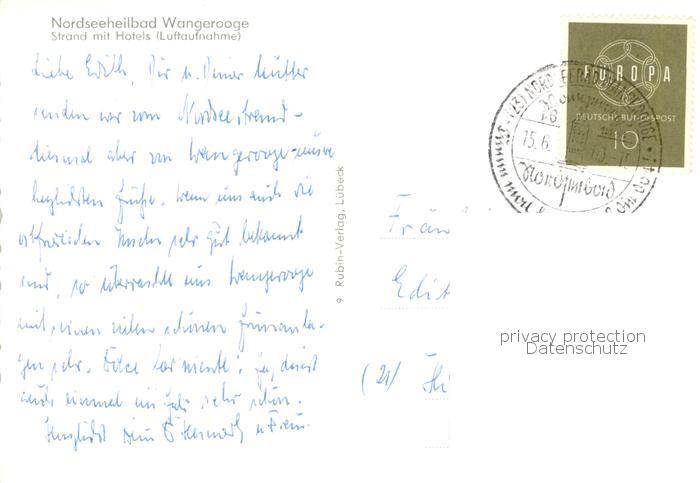 Nordseeheilbad Wangerooge
Strand mit Hotels (Luftaufnahme)
Liebe Edith, Dir u. Deiner Mutter
senden wir vom Nordseestrand -
diesmal aber von Wangerooge - unsere
herzlichsten Grüße. Wenn uns auch die
ostfriesischen Inseln sehr gut bekannt
sind, so überraschte uns Wangerooge
mit seinen vielen schönen Grünanla-
gen sehr. Dolce far niente! Ja, das ist
auch einmal im Jahr sehr schön.
Herzlichst Dein
9 Rubin-Verlag, Lübeck
EUROPA
DEUTSCHE BUNDESPOST
10
(23) NORDSEEBAD WANGEROOGE
15.6.
Nordseebad
Fräu
Edit
(21)
privacy protection
Datenschutz